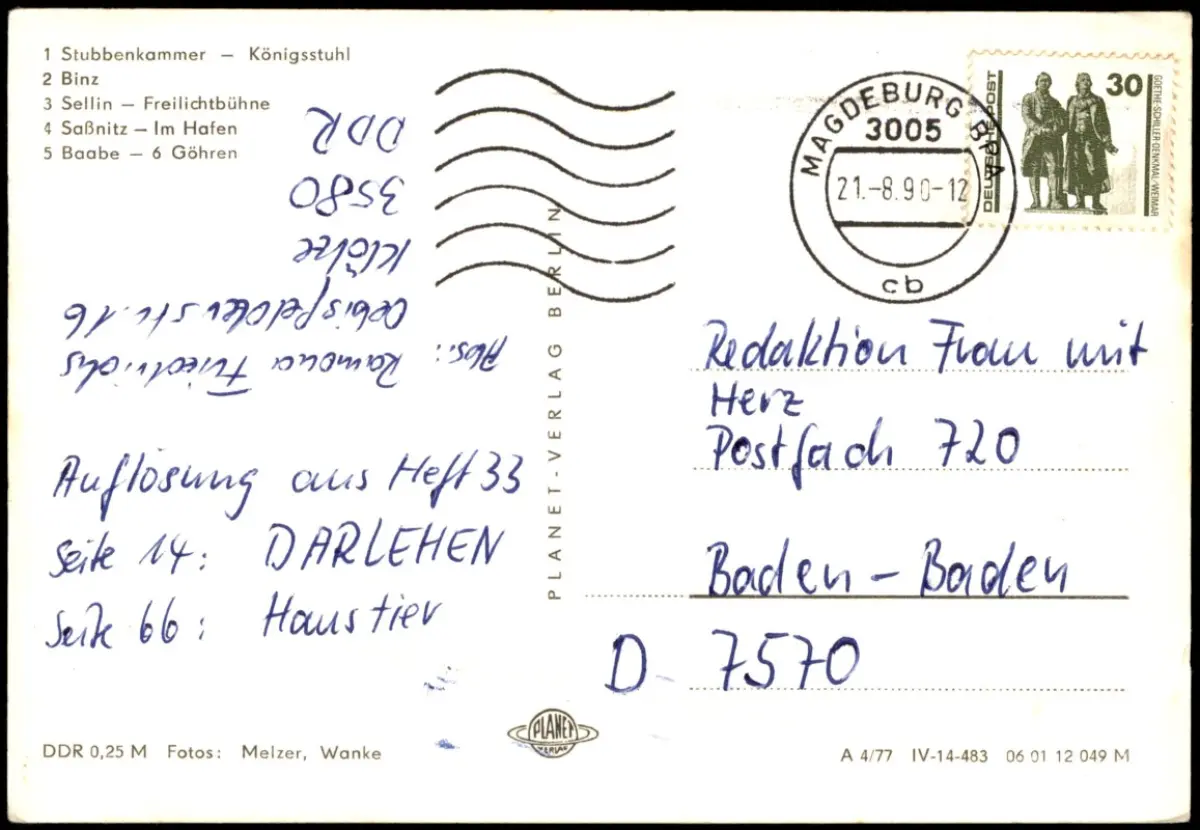 1 Stubbenkammer – Königsstuhl
2 Binz
3 Sellin – Freilichtbühne
4 Saßnitz – Im Hafen
5 Baabe – 6 Göhren
Abs.: Ramona Friedrichs
Oebisfelder Str. 16
Klötze
3580
DDR
Auflösung aus Heft 33
Seite 14: DARLEHEN
Seite 66: Haustier
DDR 0,25 M Fotos: Melzer, Wanke
PLANET-VERLAG BERLIN
PLANET
VERLAG
MAGDEBURG BPA
3005
21.-8.90-12
cb
DEUTSCHE POST
30
GOETHE-SCHILLER-DENKMAL WEIMAR
Redaktion Frau mit
Herz
Postfach 720
Baden - Baden
D- 7570
A 4/77 IV-14-483 06 01 12 049 M